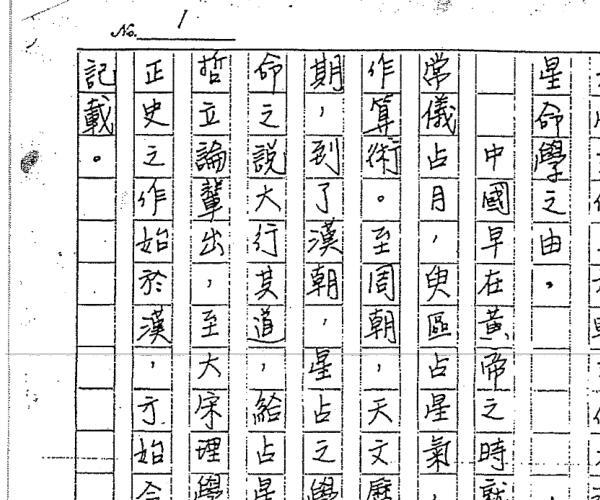 No. 1
星命學之由，
中國早在黃帝之時
常儀占月，臾區占星氣，
作算術。至周朝，天文歷
期，到了漢朝，星占之學
命之說大行其道，給占星
哲立論輩出，至大宋理學
正史之作始於漢，方始合
記載。